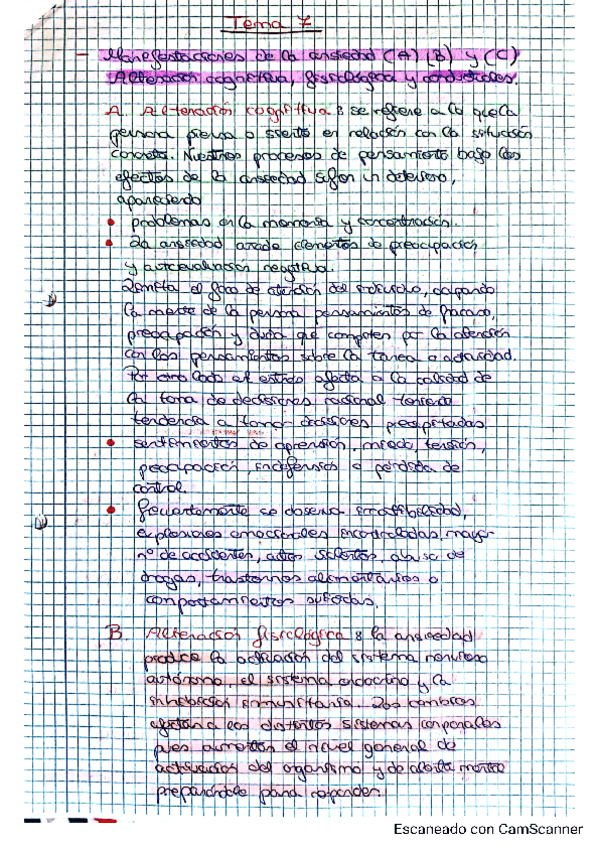 Tema 7
- Manifestaciones de la ansiedad (A) (B) y (C)
Alteración cognitiva, fisiológica y conductuales.
A. Alteración cognitiva: se refiere a lo que la
persona piensa o siente en relación con la situación
concreta. Nuestros procesos de pensamiento bajo los
efectos de la ansiedad sufren un deterioro,
apareciendo
• problemas en la memoria y concentración.
• La ansiedad añade elementos de preocupación
y autoevaluación negativa.
Limita el foco de atención del individuo, ocupando
la mente de la persona pensamientos de fracaso,
preocupación y duda que compiten por la atención
con los pensamientos sobre la tarea o actividad.
Por otro lado el estrés afecta a la calidad de
la toma de decisiones racional teniendo
tendencia a tomar decisiones precipitadas.
• sentimientos de aprensión, miedo, tensión,
preocupación, indefensión o pérdida de
control.
• frecuentemente se observa irritabilidad,
explosiones emocionales incontroladas, mayor
nº de accidentes, actos violentos, abuso de
drogas, trastornos alimentarios o
comportamientos suicidas.
B. Alteración fisiológica: la ansiedad
produce la activación del sistema nervioso
autónomo, el sistema endocrino y la
inhibición inmunitaria. Los cambios
afectan a los distintos sistemas corporales
pues aumentan el nivel general de
activación del organismo y de alerta mental
preparándole para responder.
Escaneado con CamScanner